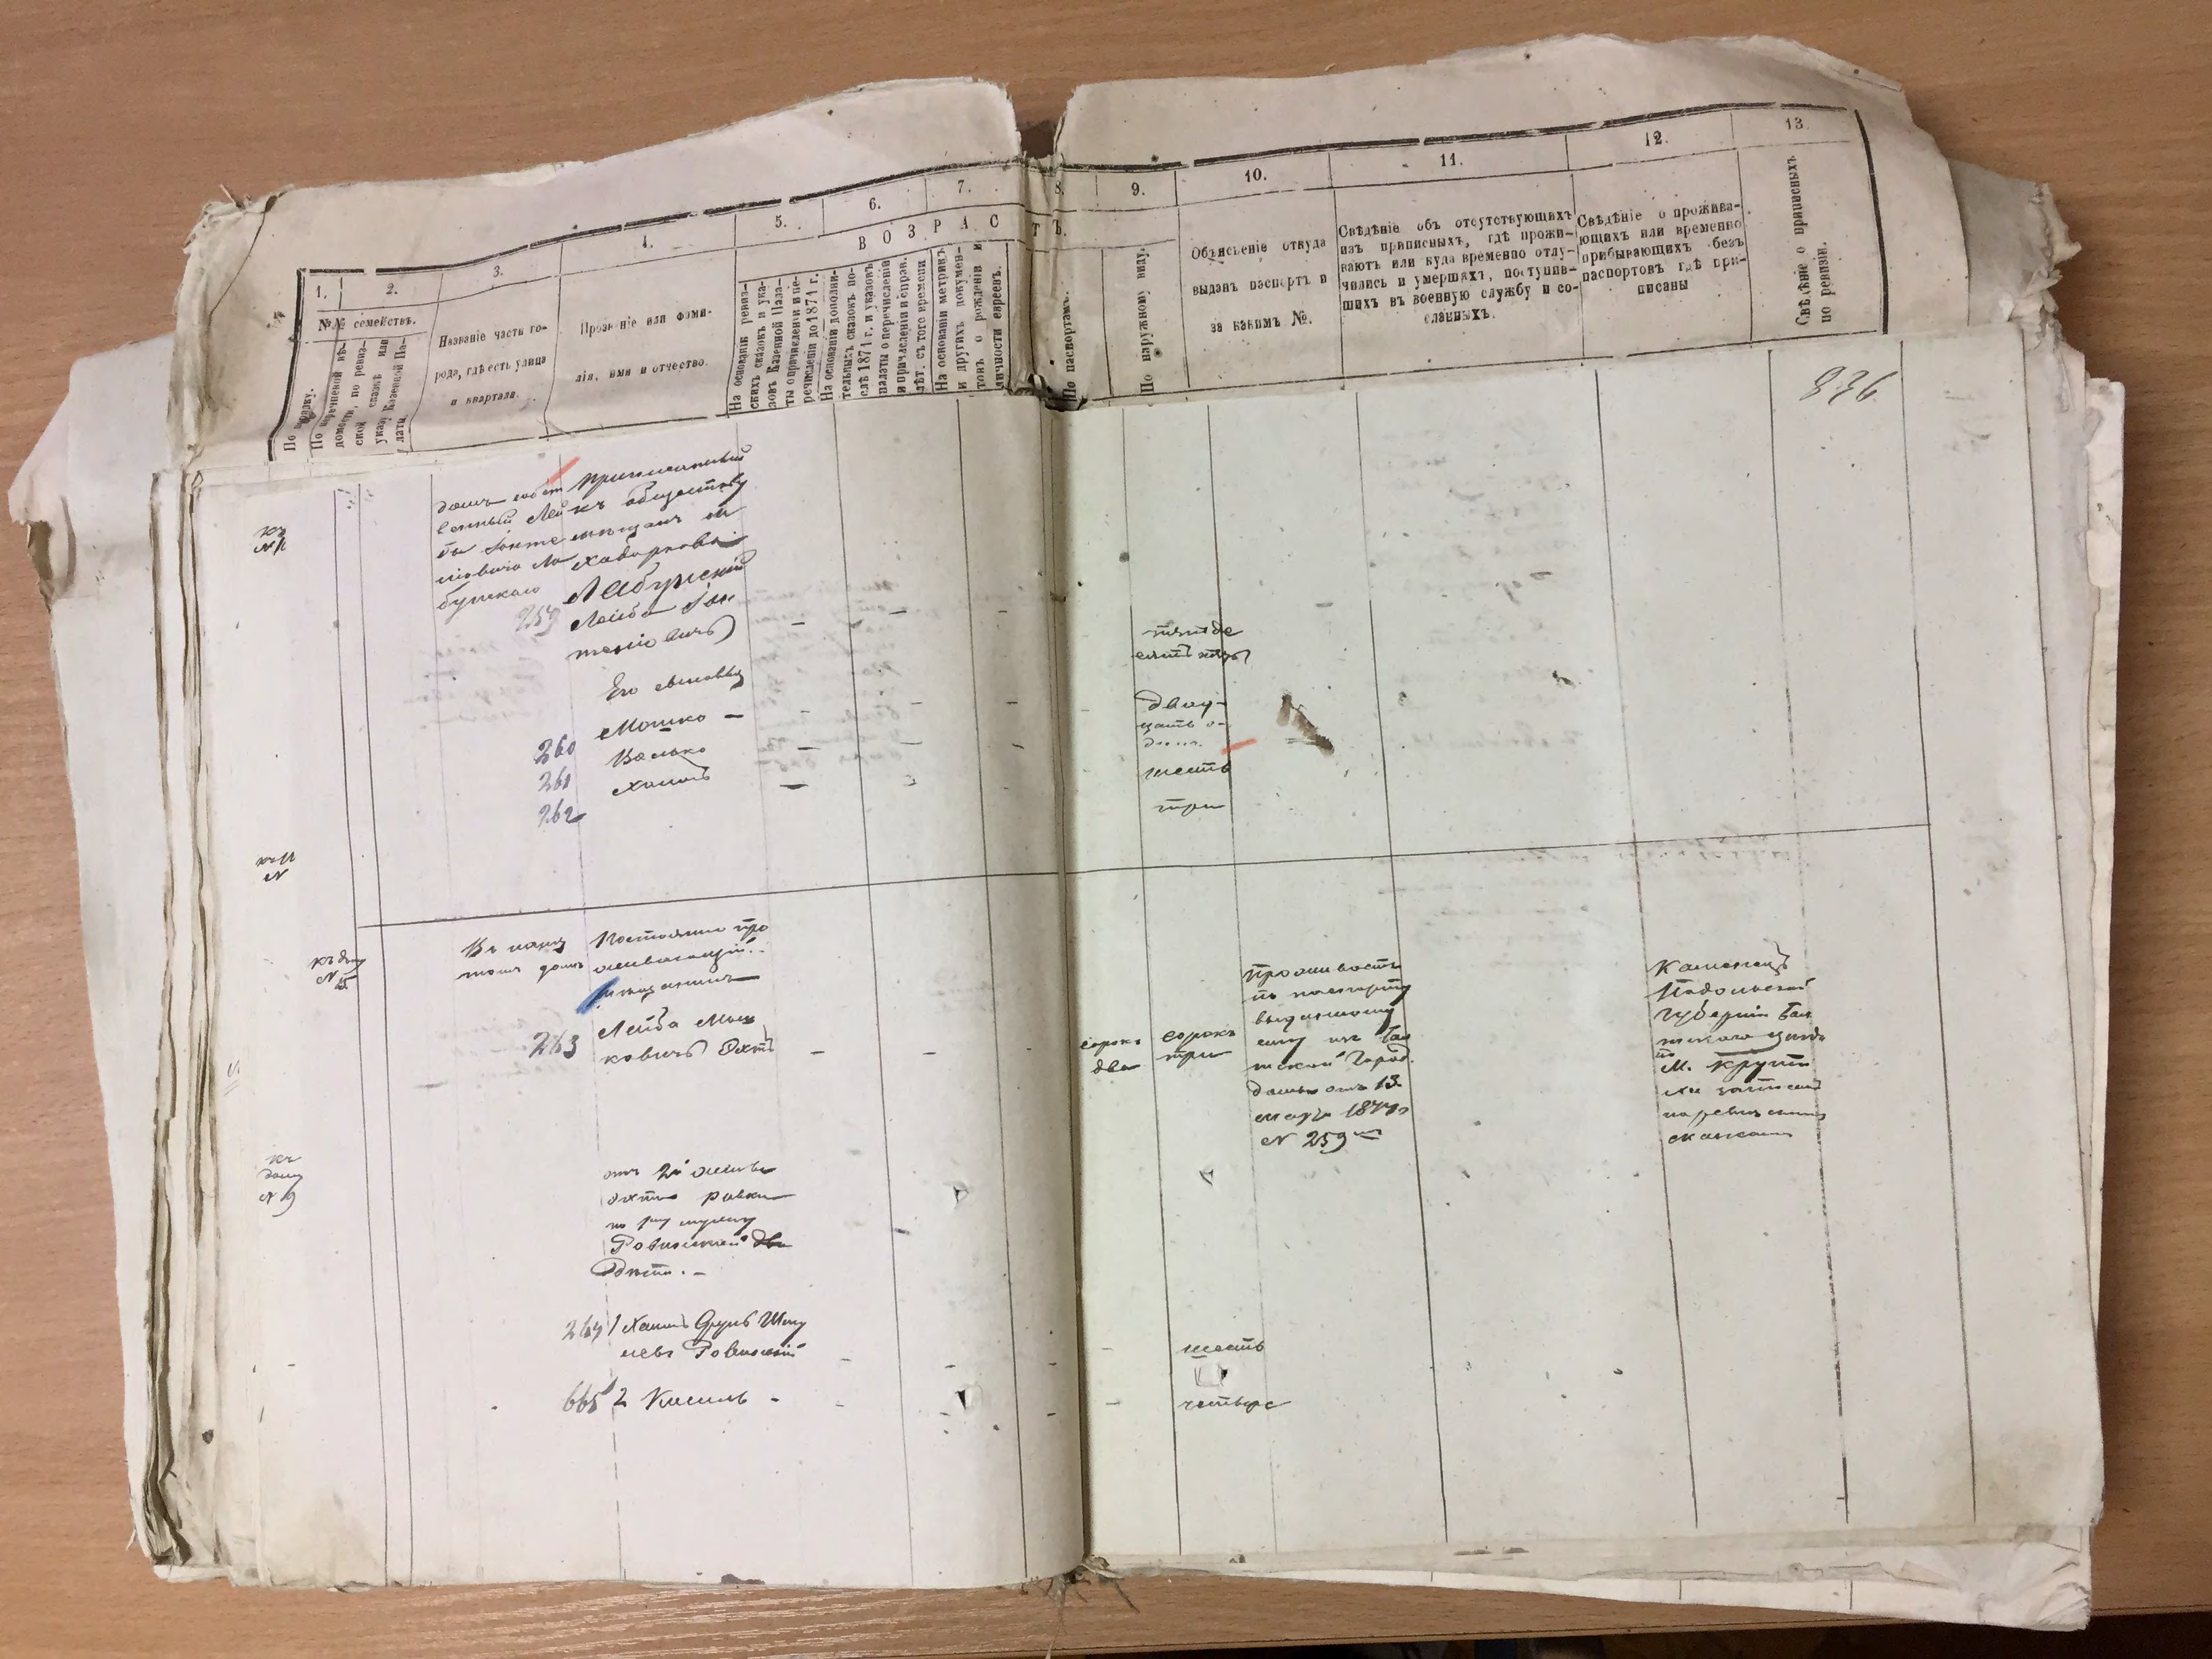 1.
2.
3.
4.
5.
6.
7.
8.
9.
10.
11.
12.
13.
ВОЗРАСТЪ.
№№ семействъ.
По порядку.
По
домости, по ревиз-
ской сказкѣ или
указ. Казенной Па-
латы
Названіе части го-
рода, гдѣ есть улица
и квартала.
Прозвеніе или фами-
лія, имя и отчество.
На основаніи ревиз-
скихъ сказокъ и ука-
зовъ Казенной Пала-
ты о причисленіи и пе-
речисленіи до 1871 г.
На основаніи дополни-
тельныхъ сказокъ по-
слѣ 1871 г. и указовъ
палаты о перечисленіи
и причисленіи и справ.
лѣт. съ того времени
На основаніи метрикъ
и другихъ докумен-
товъ о рожденіи и
личности евреевъ.
По паспортамъ.
По наружному виду.
Объясненіе откуда
выданъ паспортъ и
за какимъ №.
Свѣдѣніе объ отсутствующихъ
изъ приписныхъ, гдѣ прожи-
ваютъ или куда временно отлу-
чились и умершихъ, поступив-
шихъ въ военную службу и со-
сланныхъ.
Свѣдѣніе о прожива-
ющихъ или временно
прибывающихъ безъ
паспортовъ гдѣ при-
писаны
Свѣдѣніе о приписныхъ
по ревизіи.
936
къ
№ 11
домъ собст
венный Лей
бы
Ла
бунскаго
приписанный
къ обществу
мѣщанъ
259
Лабунскій
Лейба
Его сыновья
260 Мошко —
261 Волько
262 Хаимъ
пятьде
сятъ
двад-
цать о-
динъ
шесть
три
къ дому
№ 15
Въ
томъ домѣ
Постоянно про
живающій
мѣщанинъ
263
Лейба Мош
ковичъ Охтъ
сорокъ
два
сорокъ
три
проживаетъ
по паспорту
выданному
ему изъ Бал
тской Город.
думы отъ 13
1874 г
№ 259
Каменецъ
Подольской
губерніи Бал
тскаго уѣзда
М. Крути
по ревизскимъ
сказкамъ
къ
дому
№ 19
отъ 2й жены
Охта Равки
по 1му мужу
Ровинской
Дѣти. —
264 1 Хаимъ Сруль Шму
левъ Ровинскій
665 2 Кисиль -
шесть
четыре